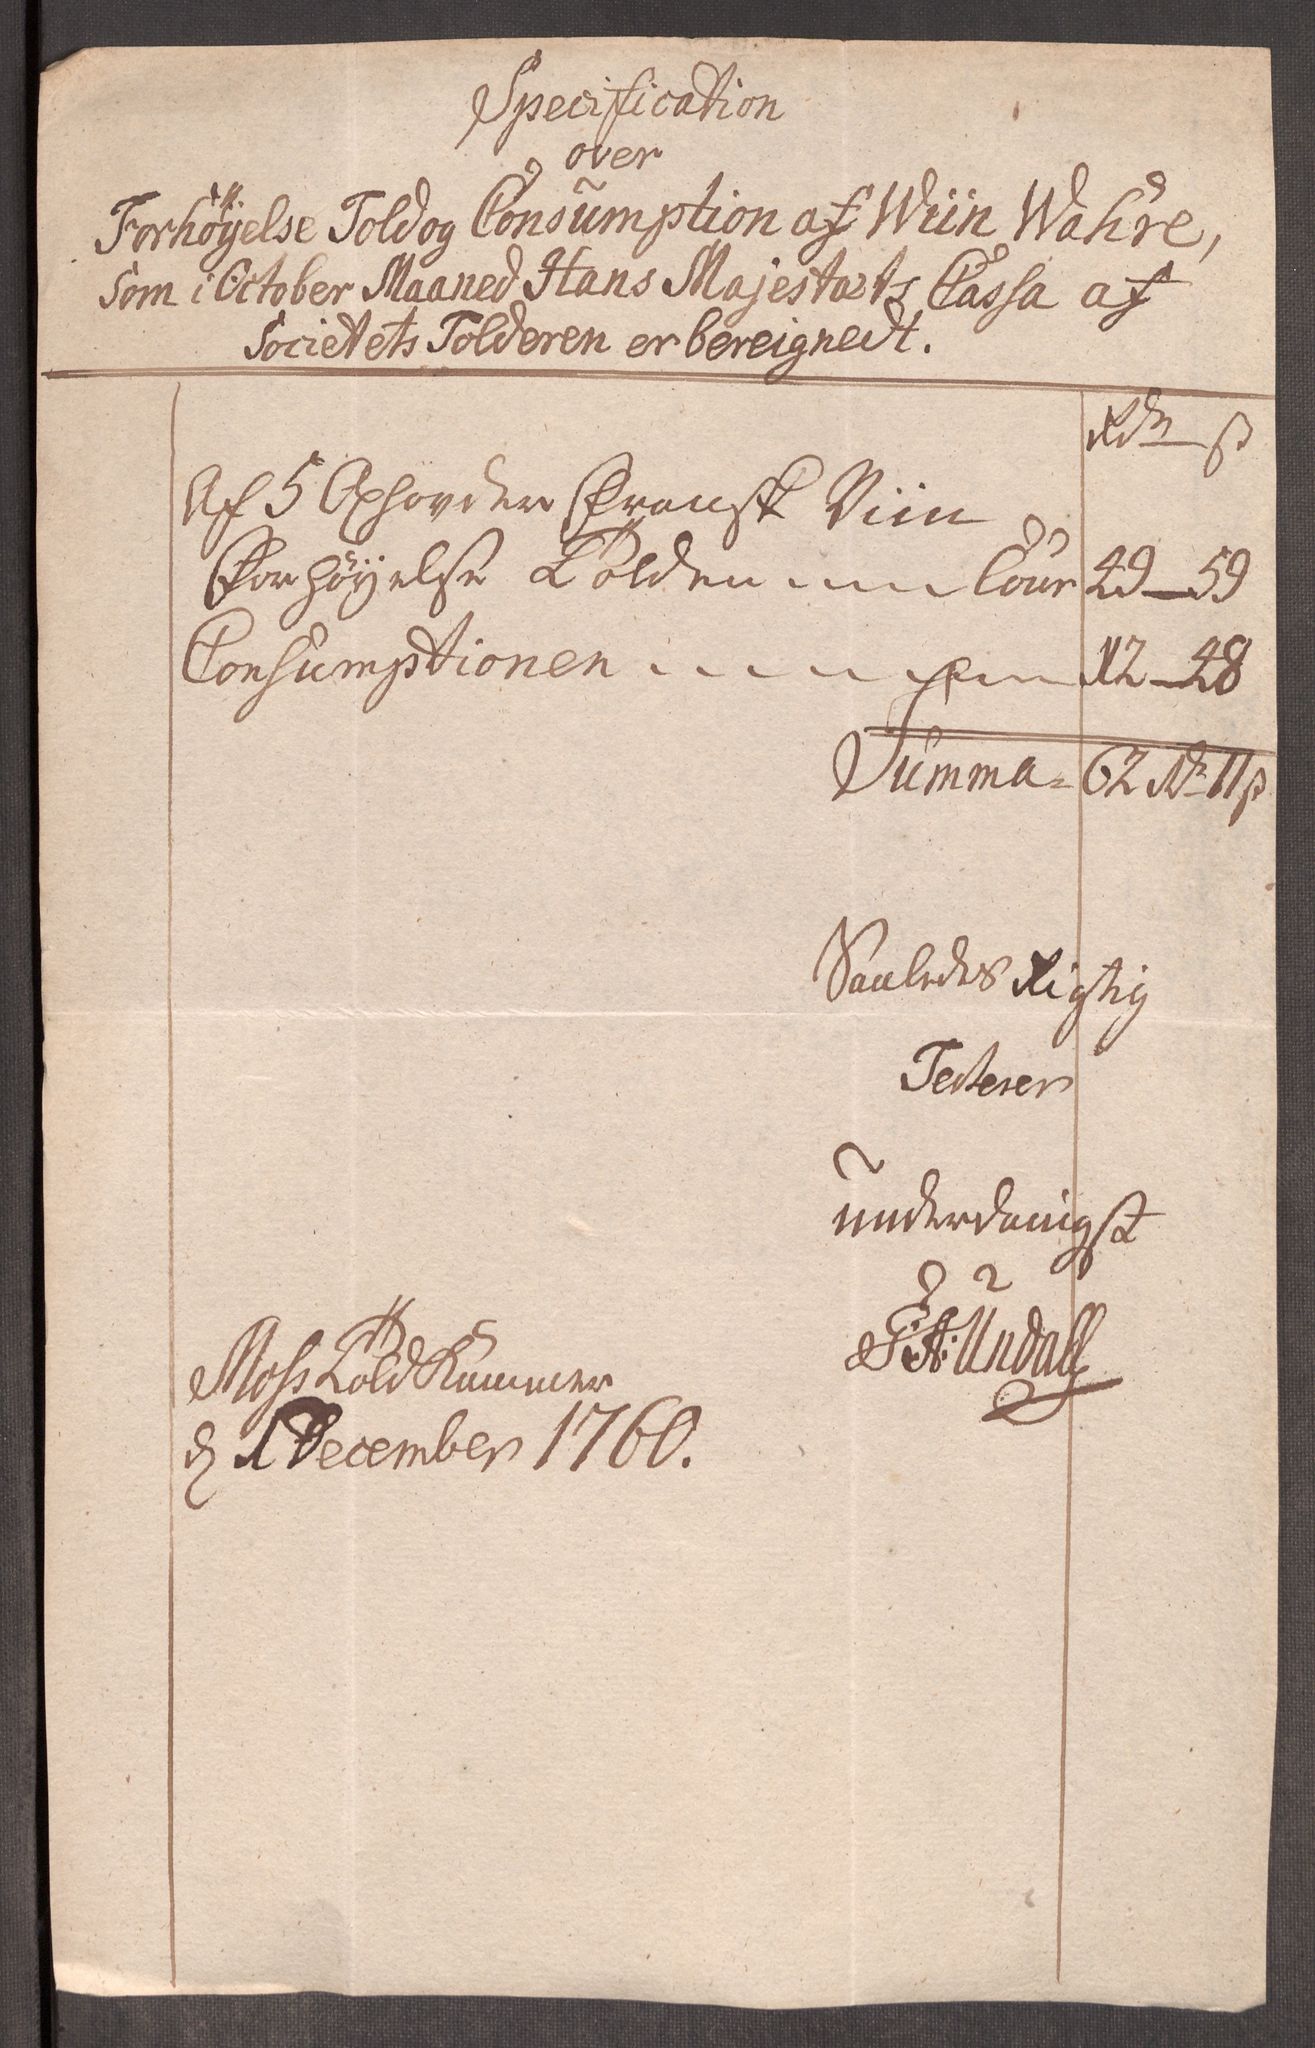 Specification
over
Forhöyelse Told og Consumption af Wiin Wahre,
som i October Maaned Hans Majestæts Cassa af
Societets Tolderen er bereignedt.
Rdr ß
Af 5 Oxhovder Fransk Viin
Forhöyelse Tolden Cour 49 59
Consumptionen 12 48
Summa 62 Rdr 11 ß
Saaledes Rigtig
Testerer
underdanigst
Undall
Moss Told Kammer
d 1 December 1760.